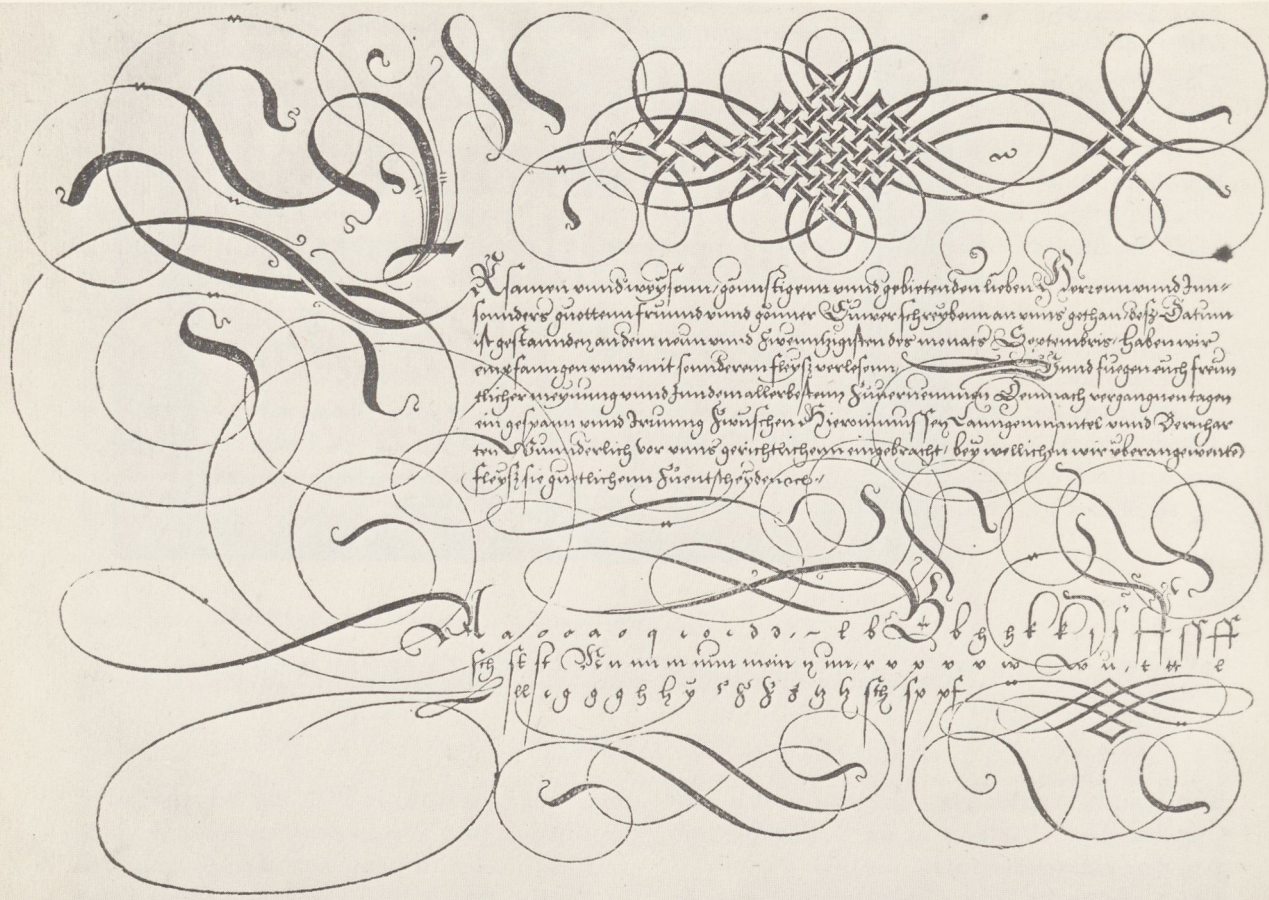 Ersamen vnnd weysenn, gonnstigenn vnnd gebietenden lieben Herrenn vnnd Inn=
sonnders guottenn frunnd vnnd gonner Euwer schreybenn an vnns gethan, desz Datum
ist gestannden an dem neun vnnd Zwenntzigisten des monats Septembris, haben wir
empfanngen vnnd mit sonnderem fleysz verlesenn, Vnnd fuegen euch freun
tlicher meynung vnnd Inn dem allerbestenn Zuuernemmen Demnach vergangnen tagen
ein gespann vnnd Irrung Zwuschen Hieronimussen Lanngenmantel vnnd Bernhar
ten Wunnderlich vor vnns gerichtlichenn eingebracht, bey wellichen wir vber angewenten
fleysz sie guetlichenn Zuentscheyden ech.
A a o o a o q c o c d d l b B b h h k k ſſ ff ſſ ff
sch st st M n m m nnn mein n nn r v p v v w w u t tt l
ll g g g g h h y z z z z h h sch sp pf